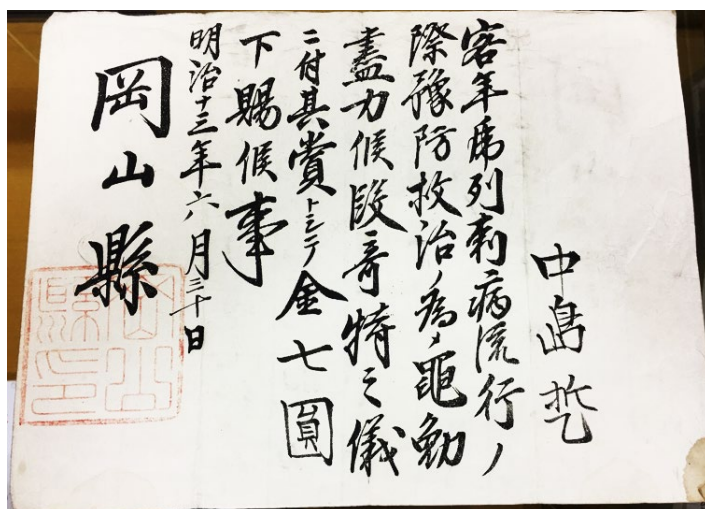 中島 哲
客年虎列剌病流行ノ
際豫防救治ノ為メ黽勉
盡力候段奇特之儀
ニ付其賞トシテ金七圓
下賜候事
明治十三年六月三十日
岡山縣
岡山縣印